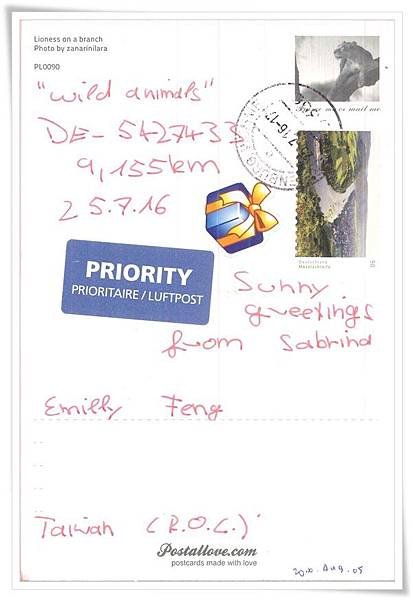 Lioness on a branch
Photo by zanarinilara
PL0090
"wild animals"
DE-5427433
9,155km
25.7.16
PRIORITY
PRIORITAIRE / LUFTPOST
Deutschland
Moselschleife
Sunny
greetings
from Sabrina
Emilly Feng
Taiwan (R.O.C.)
Postallove.com
postcards made with love